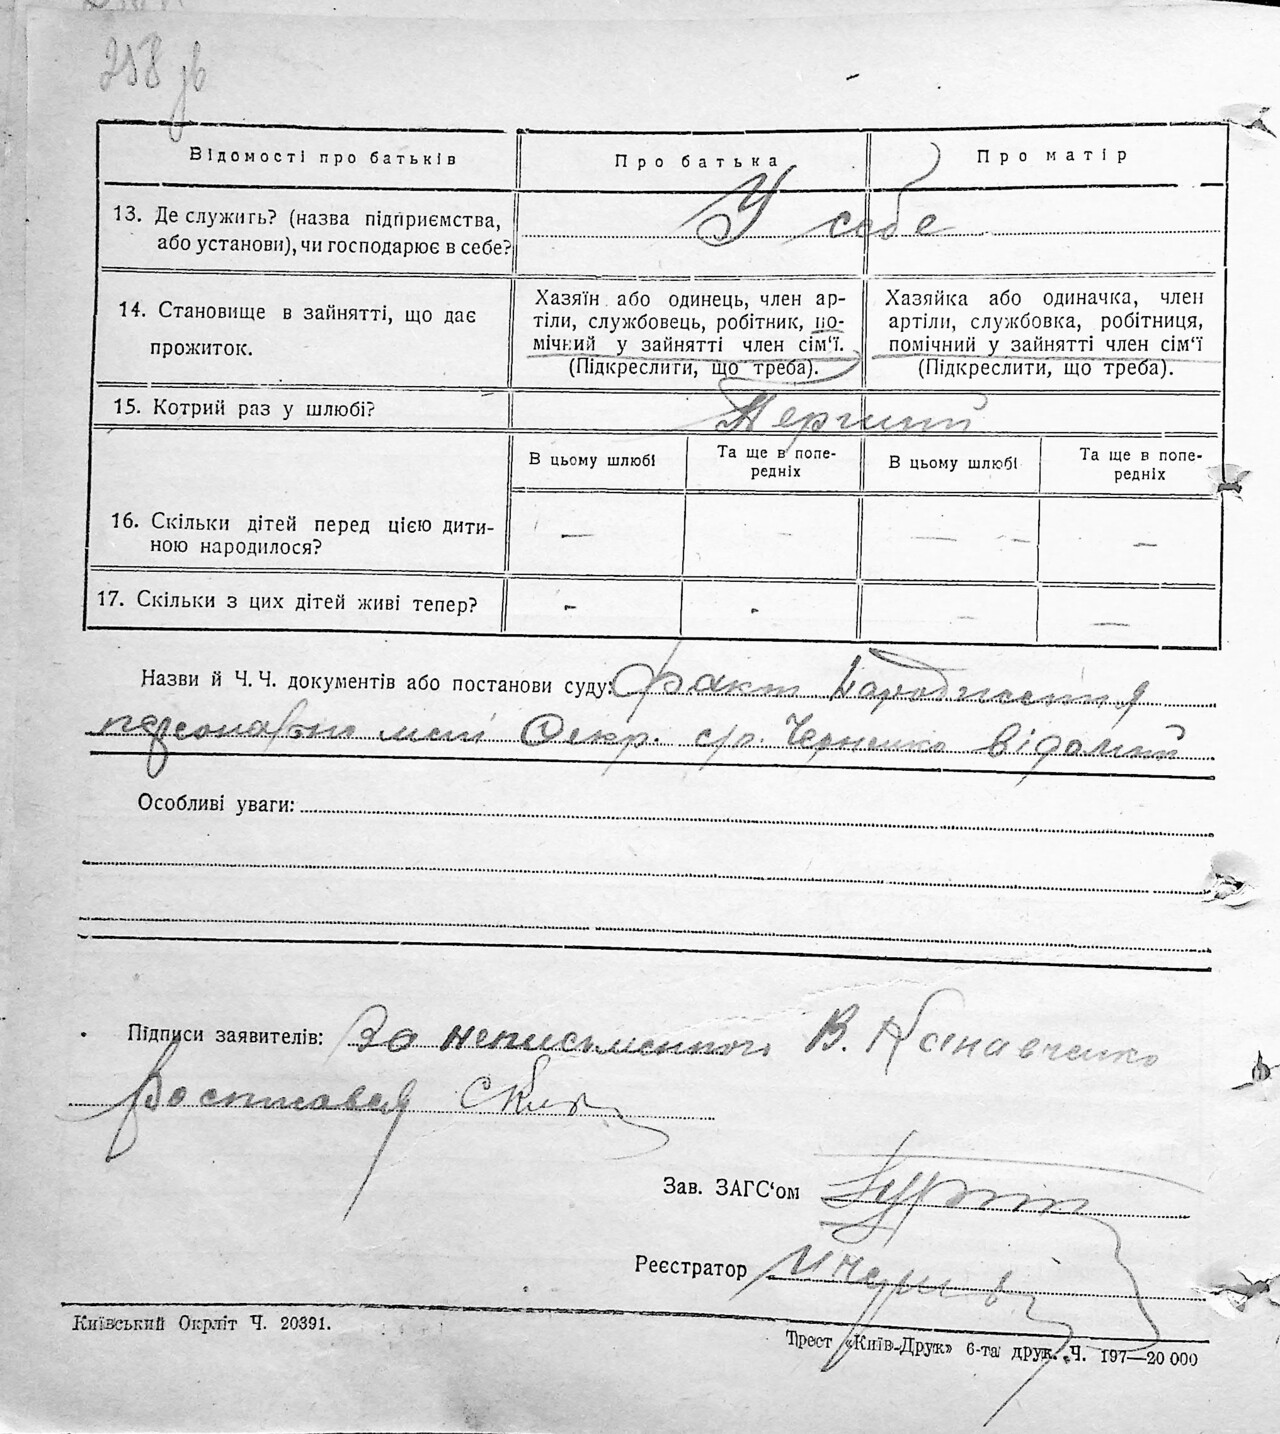 258 зв
Відомості про батьків
Про батька
Про матір
13. Де служить? (назва підприємства,
або установи), чи господарює в себе?
У себе
14. Становище в зайнятті, що дає
прожиток.
Хазяїн або одинець, член ар-
тіли, службовець, робітник, по-
мічний у зайнятті член сім'ї.
(Підкреслити, що треба).
Хазяйка або одиначка, член
артіли, службовка, робітниця,
помічний у зайнятті член сім'ї
(Підкреслити, що треба).
15. Котрий раз у шлюбі?
Перший
В цьому шлюбі
Та ще в попе-
редніх
В цьому шлюбі
Та ще в попе-
редніх
16. Скільки дітей перед цією дити-
ною народилося?
— - — - —
17. Скільки з цих дітей живі тепер?
- - — —
Назви й Ч. Ч. документів або постанови суду: факт народження
персонально мені Секр. с/р. Черненко відомий
Особливі уваги:
Підписи заявителів: За неписьменного В. Канавченко
Зав. ЗАГС'ом
Реєстратор
Київський Окрліт Ч. 20391.
Трест «Київ-Друк» 6-та друк. Ч. 197—20 000